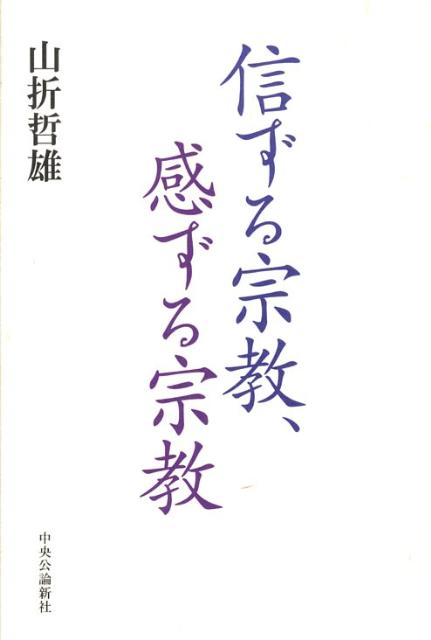 信ずる宗教、
感ずる宗教
山折哲雄
中央公論新社